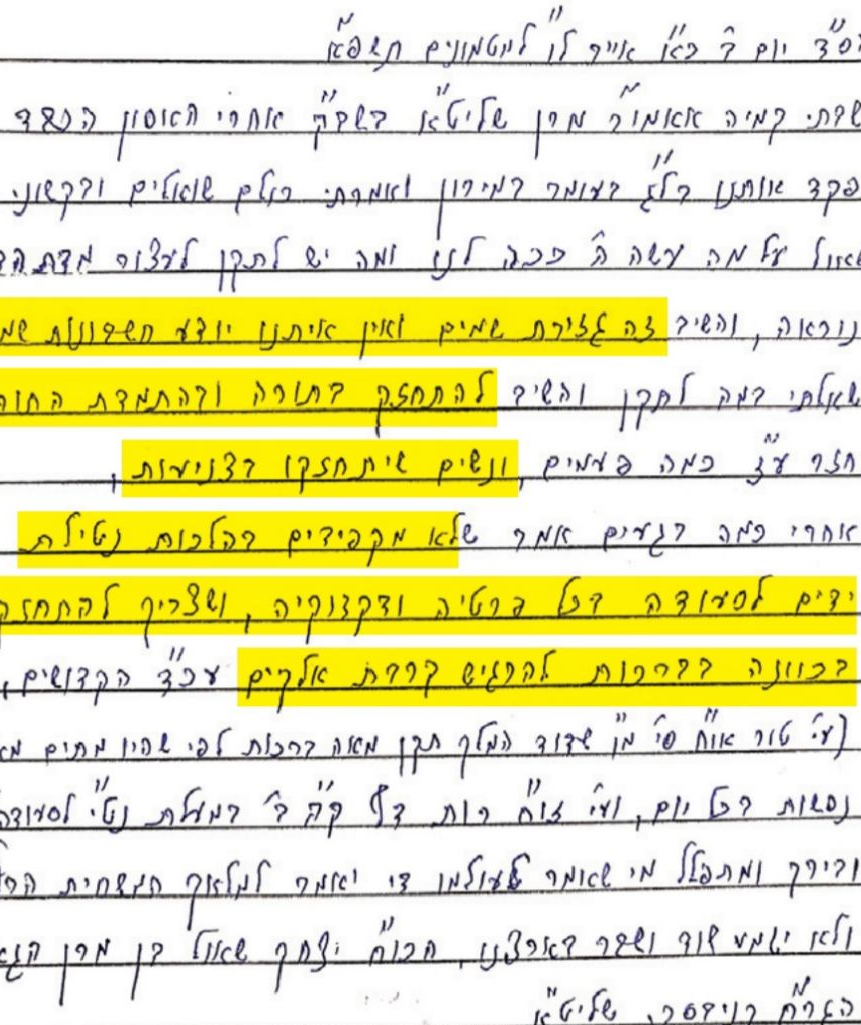 בס"ד יום ב' כ"א אייר ל"ו למטמונים תשפ"א
ישבתי קמיה אאמו"ר מרן שליט"א בשב"ק אחרי האסון הכבד
פקד אותנו בל"ג בעומר במירון ואמרתי כולם שואלים ובקשוני
לשאול על מה עשה ה' ככה לנו ומה יש לתקן לעצור מדת הד
נוראה, והשיב זה גזירת שמים ואין איתנו יודע חשבונות שמ
שאלתי במה לתקן והשיב להתחזק בתורה ובהתמדת התור
חזר ע"ז כמה פעמים, ונשים שיתחזקו בצניעות,
אחרי כמה רגעים אמר שלא מקפידים בהלכות נטילת
ידים לסעודה בכל פרטיה ודקדוקיה, ושצריך להתחזק
בכוונה בברכות להרגיש קרבת אלקים עכ"ד הקדושים,
(עי' טור או"ח סי' מ"ו שדוד המלך תקן מאה ברכות לפי שהיו מתים מא
נפשות בכל יום, ועי' זו"ח רות דף ק"ה ב' במעלת נט"י לסעודה
ובירך ומתפלל מי שאומר לעולמו די יאמר למלאך המשחית הר
ולא ישמע שוד ושבר בארצנו, הכו"ח יצחק שאול בן מרן הגא
הגר"ח קניבסקי שליט"א